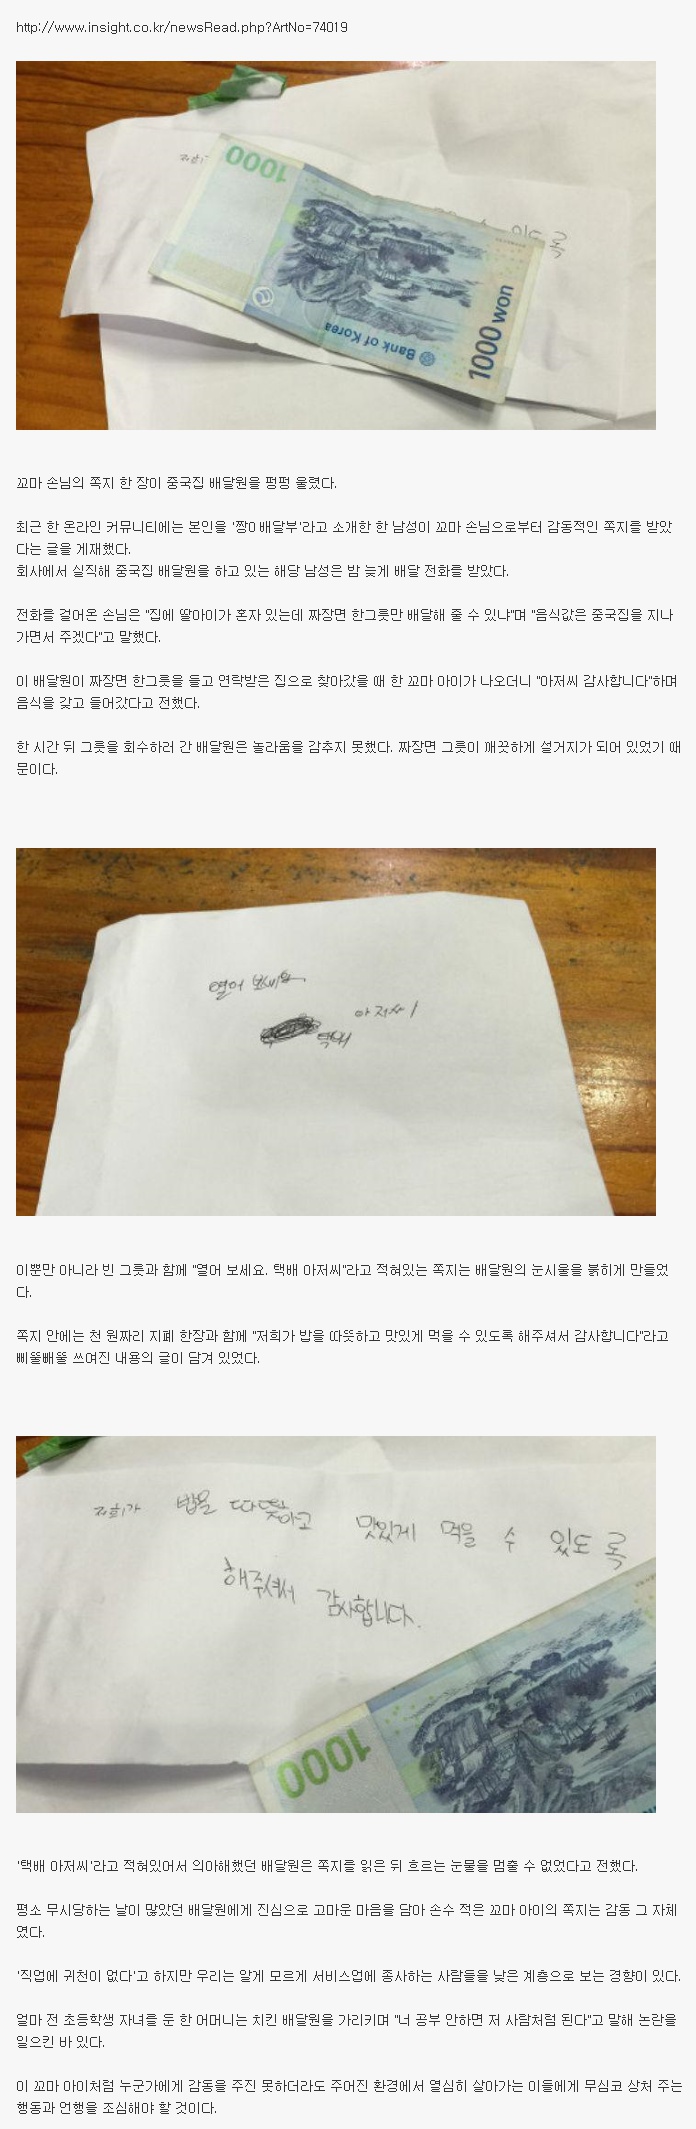 http://www.insight.co.kr/newsRead.php?ArtNo=74019
저희
1000
있도록
Bank of Korea
1000 won
꼬마 손님의 쪽지 한 장이 중국집 배달원을 펑펑 울렸다.
최근 한 온라인 커뮤니티에는 본인을 '짱0 배달부'라고 소개한 한 남성이 꼬마 손님으로부터 감동적인 쪽지를 받았
다는 글을 게재했다.
회사에서 실직해 중국집 배달원을 하고 있는 해당 남성은 밤 늦게 배달 전화를 받았다.
전화를 걸어온 손님은 "집에 딸아이가 혼자 있는데 짜장면 한그릇만 배달해 줄 수 있냐"며 "음식값은 중국집을 지나
가면서 주겠다"고 말했다.
이 배달원이 짜장면 한그릇을 들고 연락받은 집으로 찾아갔을 때 한 꼬마 아이가 나오더니 "아저씨 감사합니다"하며
음식을 갖고 들어갔다고 전했다.
한 시간 뒤 그릇을 회수하러 간 배달원은 놀라움을 감추지 못했다. 짜장면 그릇이 깨끗하게 설거지가 되어 있었기 때
문이다.
열어 보세요
택배 아저씨
이뿐만 아니라 빈 그릇과 함께 "열어 보세요. 택배 아저씨"라고 적혀있는 쪽지는 배달원의 눈시울을 붉히게 만들었
다.
쪽지 안에는 천 원짜리 지폐 한장과 함께 "저희가 밥을 따뜻하고 맛있게 먹을 수 있도록 해주셔서 감사합니다"라고
삐뚤빼뚤 쓰여진 내용의 글이 담겨 있었다.
저희가 밥을 따뜻하고 맛있게 먹을 수 있도록
해주셔서 감사합니다.
1000
'택배 아저씨'라고 적혀있어서 의아해했던 배달원은 쪽지를 읽은 뒤 흐르는 눈물을 멈출 수 없었다고 전했다.
평소 무시당하는 날이 많았던 배달원에게 진심으로 고마운 마음을 담아 손수 적은 꼬마 아이의 쪽지는 감동 그 자체
였다.
'직업에 귀천이 없다'고 하지만 우리는 알게 모르게 서비스업에 종사하는 사람들을 낮은 계층으로 보는 경향이 있다.
얼마 전 초등학생 자녀를 둔 한 어머니는 치킨 배달원을 가리키며 "너 공부 안하면 저 사람처럼 된다"고 말해 논란을
일으킨 바 있다.
이 꼬마 아이처럼 누군가에게 감동을 주진 못하더라도 주어진 환경에서 열심히 살아가는 이들에게 무심코 상처 주는
행동과 언행을 조심해야 할 것이다.